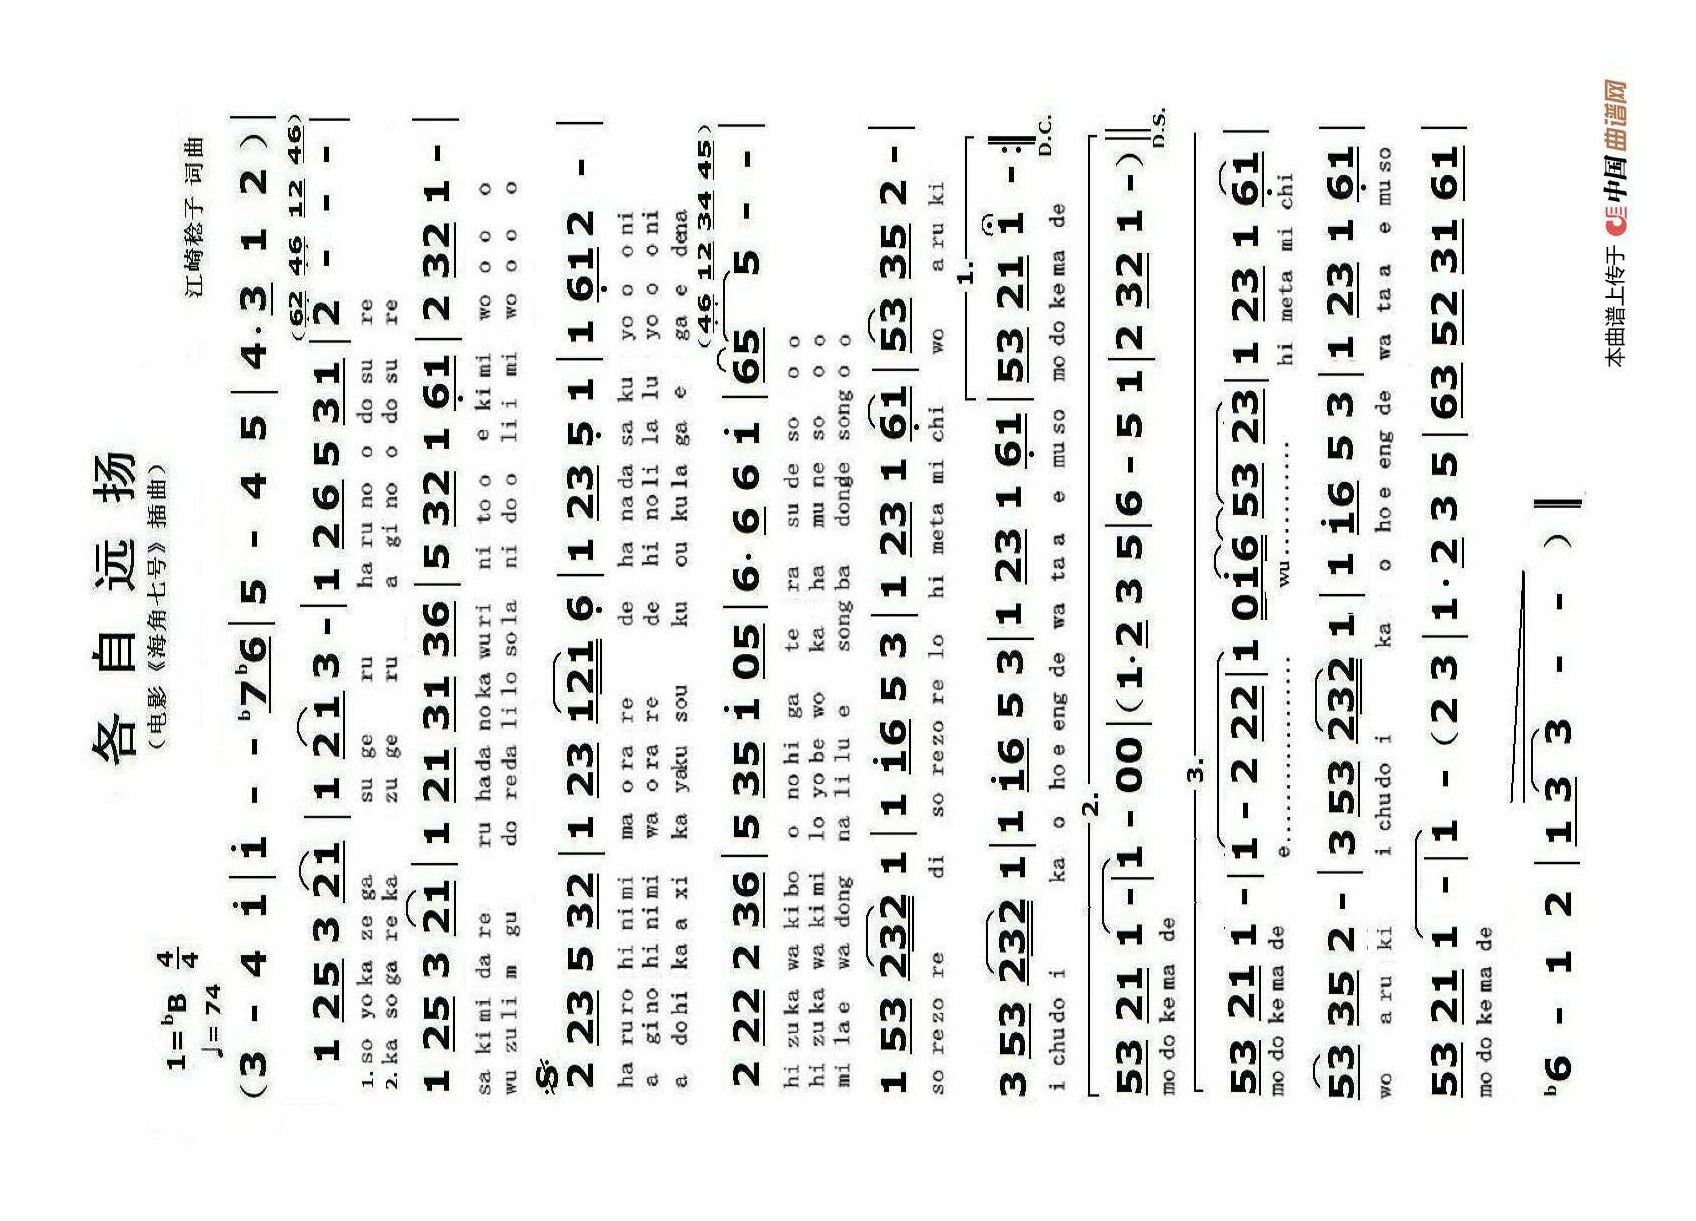 各自远扬
(电影《海角七号》插曲)
1=♭B 4/4
♩=74
江崎稔子 词曲
(3 - 4 i | i - - ♭7♭6 | 5 - 4 5 | 4· 3 1 2) |
(62 46 12 46)
1 25 3 21 | 1 21 3 - | 1 26 5 31 | 2 - - - |
1. so yo ka ze ga su ge ru ha ru no o do su re
2. ka so ga re ka zu ge ru a gi no o do su re
1 25 3 21 | 1 21 31 36 | 5 32 1 61 | 2 32 1 - |
sa ki mi da re ru hada no ka wu ri ni to o e ki mi wo o o o
wu zu li m gu do reda li lo so la ni do o li i mi wo o o o
2 23 5 32 | 1 23 121 6 | 1 23 5 1 | 1 612 - |
ha ru ro hi ni mi ma o ra re de ha nada sa ku yo o o ni
a gi no hi ni mi wa o ra re de hi no li la lu yo o o ni
a do hi ka a xi ka yaku sou ku ou ku la ga e ga e dena
(46 12 34 45)
2 22 2 36 | 5 35 i 05 | 6· 6 6 i | 65 5 - - |
hi zu ka wa ki bo o no hi ga te ra su de so o o
hi zu ka wa ki mi lo yo be wo ka ha mu ne so o o
mi la e wa dong na li lu e song ba dong de song o o
1 53 232 1 | 1 i6 5 3 | 1 23 1 61 | 53 35 2 - |
so re zo re di so re zo re lo hi meta mi chi wo a ru ki
1.
3 53 232 1 | 1 i6 5 3 | 1 23 1 61 | 53 21 1 - :‖
D.C.
i chu do i ka o ho e eng de wa ta a e mu so mo do ke ma de
2.
53 21 1 - | 1 - 00 | (1· 2 3 5 | 6 - 5 1 | 2 32 1 -) ‖
D.S.
mo do ke ma de
3.
53 21 1 - | 1 - 2 22 | 1 0i6 53 23 | 1 23 1 61 |
mo do ke ma de e................ wu........... hi meta mi chi
53 35 2 - | 3 53 232 1 | 1 i6 5 3 | 1 23 1 61 |
wo a ru ki i chu do i ka o ho e eng de wa ta a e mu so
53 21 1 - | 1 - (2 3 | 1· 2 3 5 | 63 52 31 61 |
mo do ke ma de
♭6 - 1 2 | 13 3 - - ) ‖
本曲谱上传于 中国曲谱网